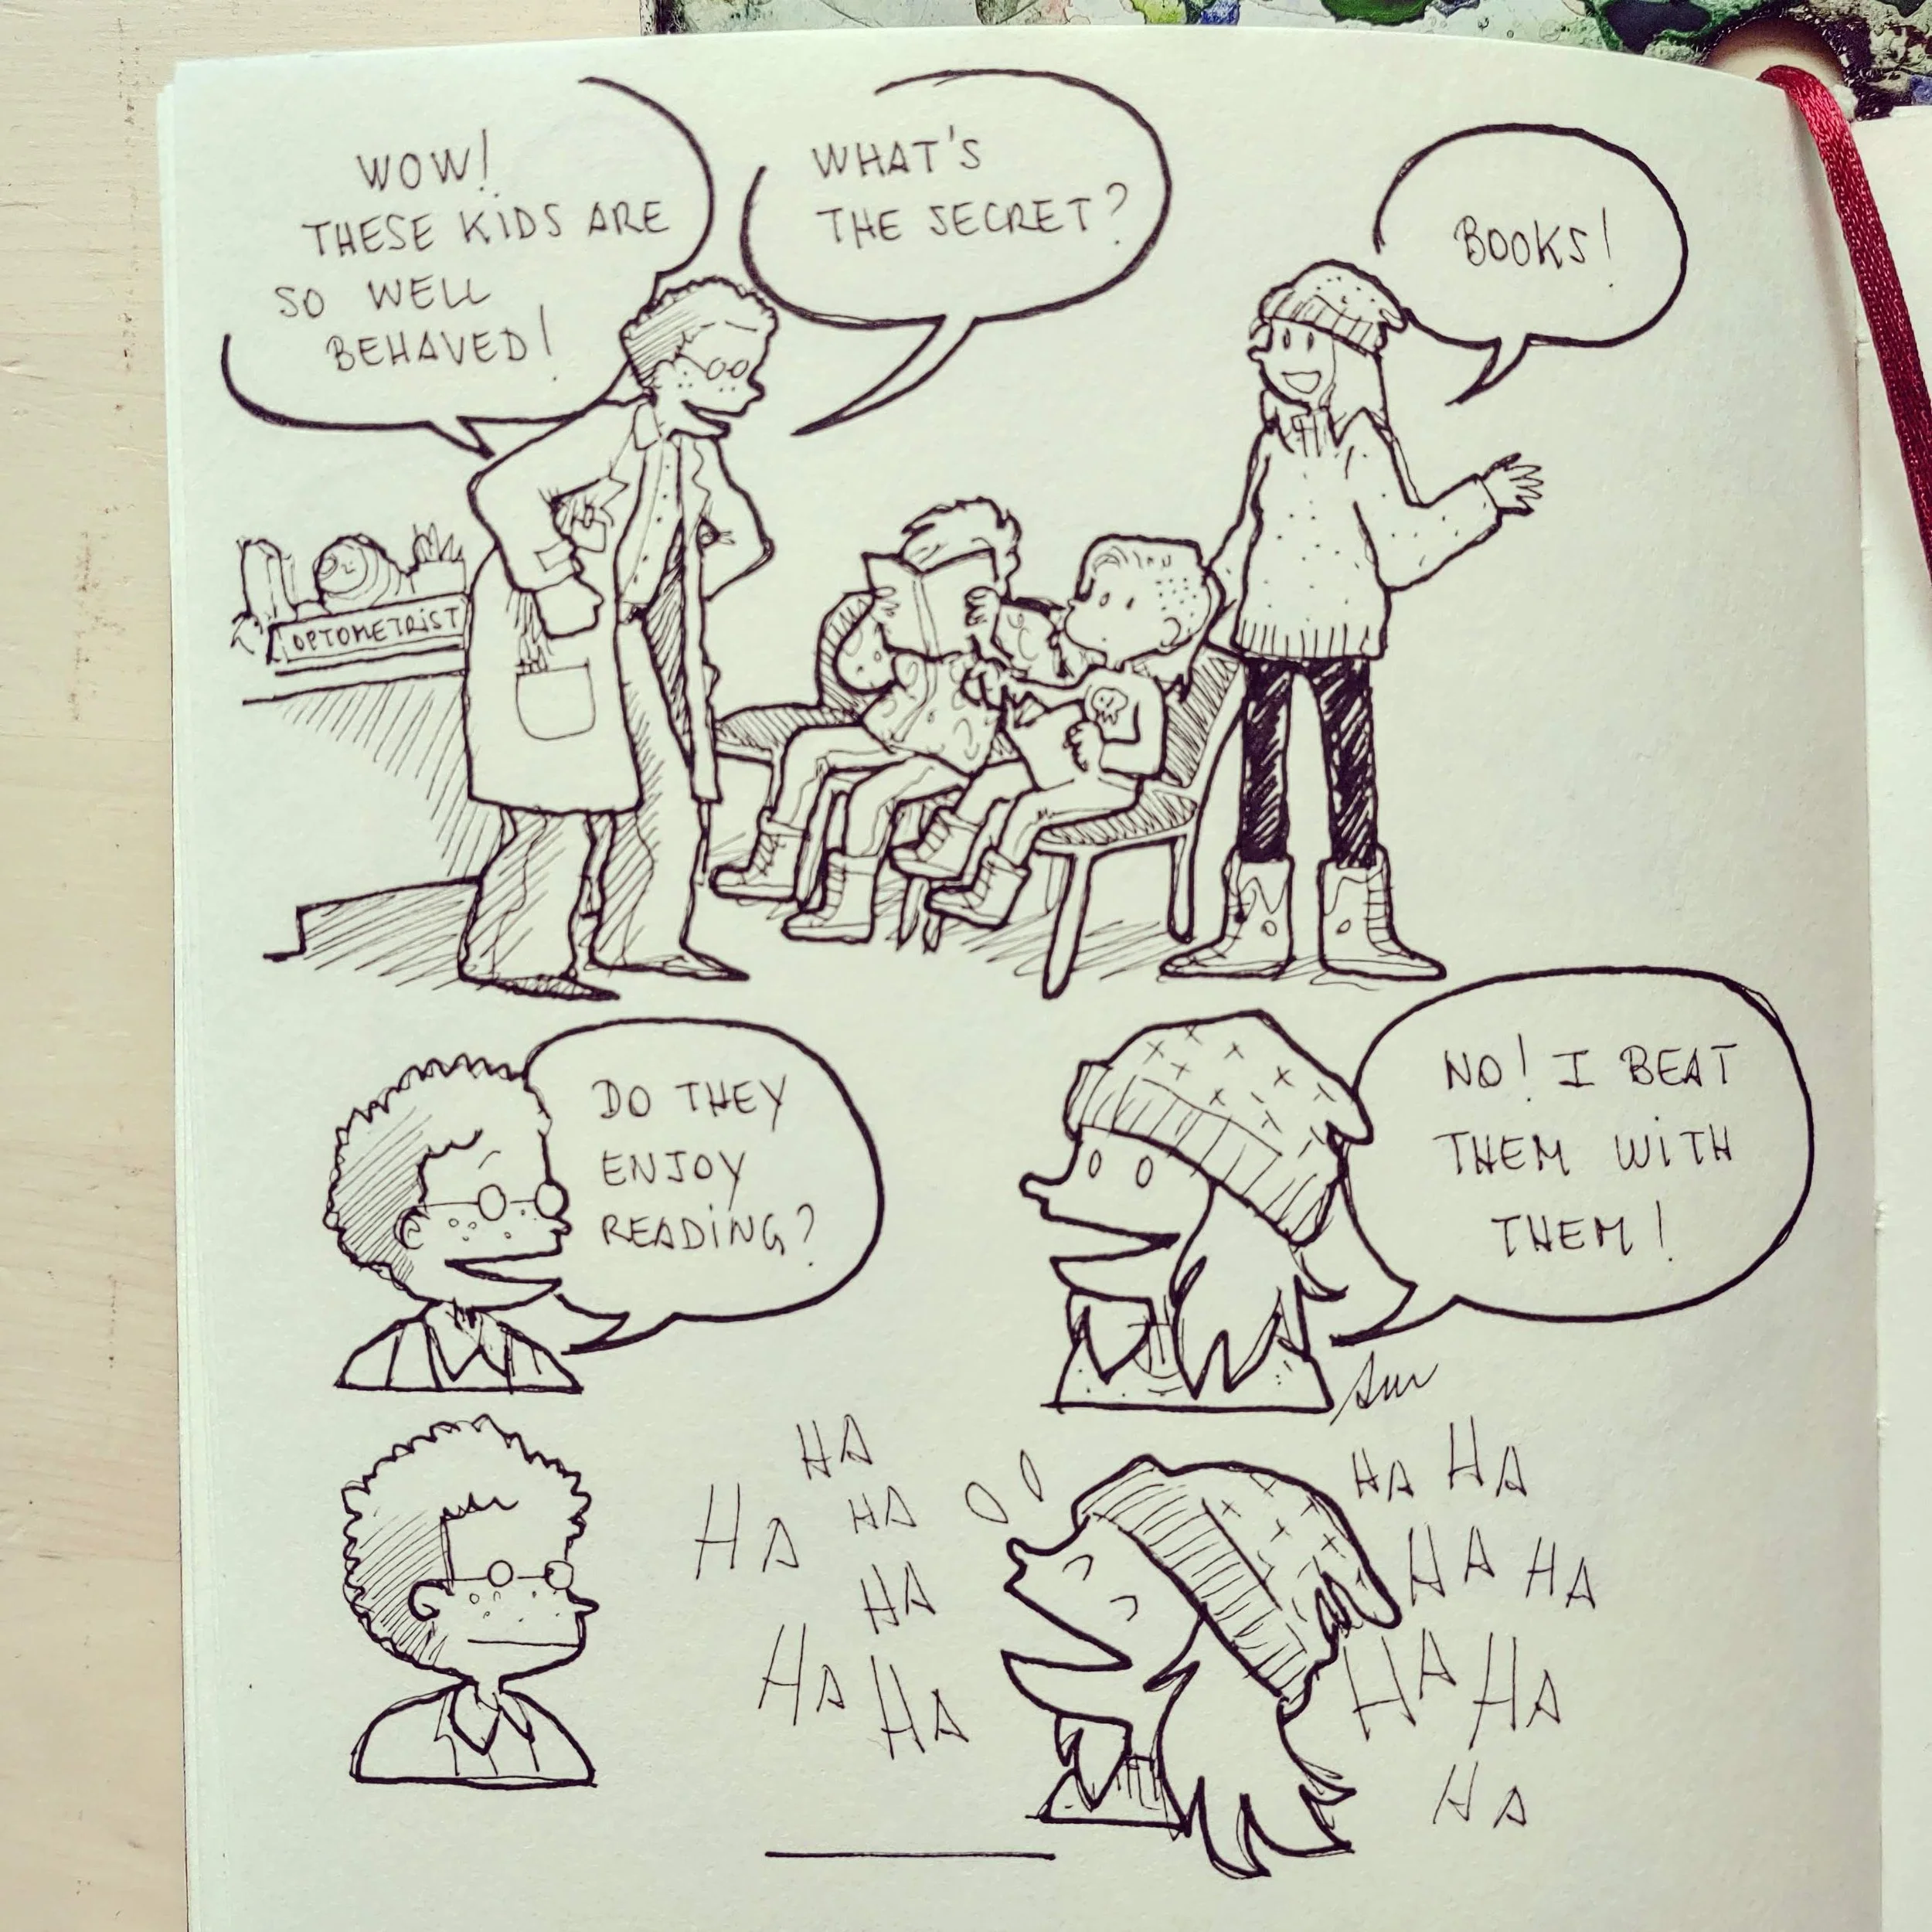 WOW!
THESE KIDS ARE
SO WELL
BEHAVED!
WHAT'S
THE SECRET?
BOOKS!
OPTOMETRIST
DO THEY
ENJOY
READING?
NO! I BEAT
THEM WITH
THEM!
HA
HA
HA
HA
HA
HA
HA
HA
HA
HA
HA
HA
HA